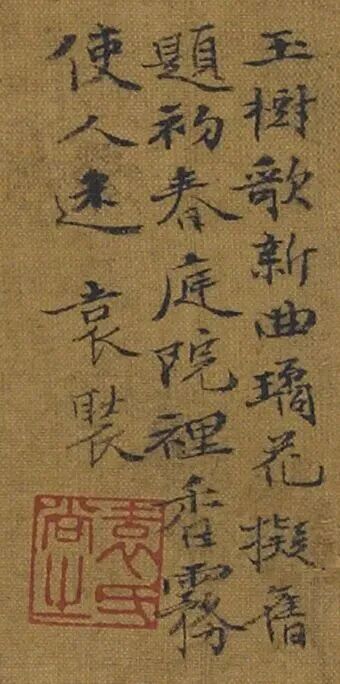 玉樹歌新曲璚花擬舊
題初春庭院裡香霧
使人迷 袁褧
袁氏尚之